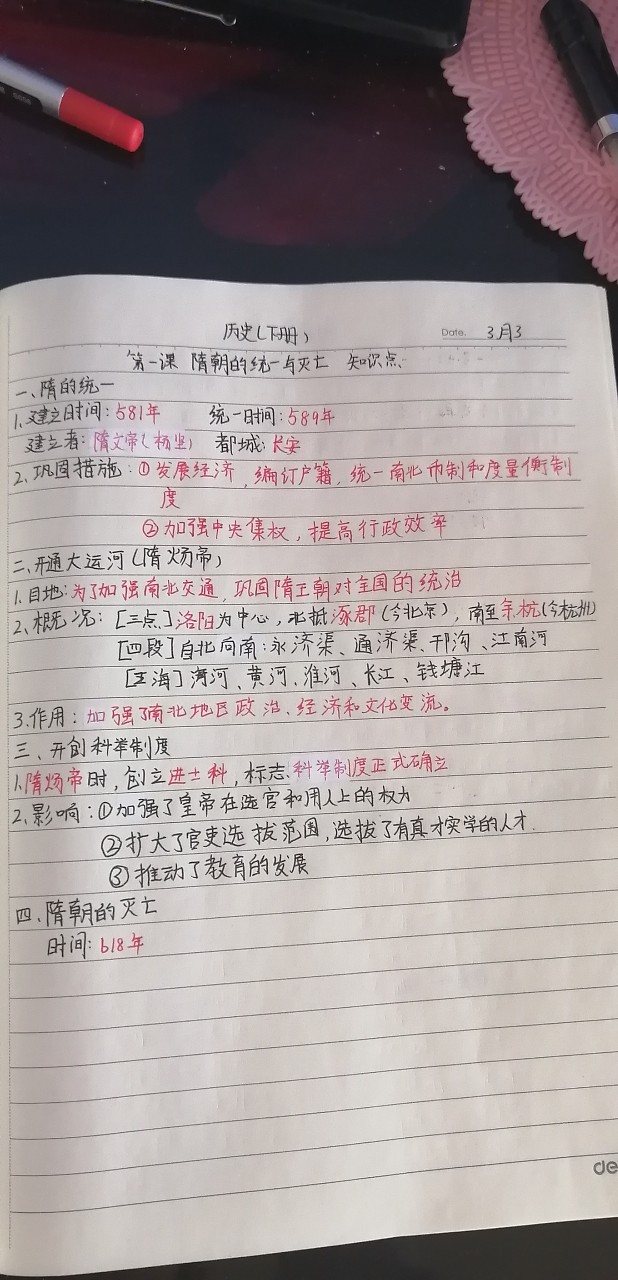 历史(下册)
Date. 3月3
第一课 隋朝的统一与灭亡 知识点
一、隋的统一
1.建立时间:581年 统一时间:589年
建立者:隋文帝(杨坚) 都城:长安
2、巩固措施:①发展经济,编订户籍,统一南北币制和度量衡制
度
②加强中央集权,提高行政效率
二、开通大运河(隋炀帝)
1.目地:为了加强南北交通,巩固隋王朝对全国的统治
2、概况:[三点]洛阳为中心,北抵涿郡(今北京),南至余杭(今杭州)
[四段]自北向南:永济渠、通济渠、邗沟、江南河
[五海]海河、黄河、淮河、长江、钱塘江
3.作用:加强了南北地区政治、经济和文化交流。
三、开创科举制度
1.隋炀帝时,创立进士科,标志科举制度正式确立
2.影响:①加强了皇帝在选官和用人上的权力
②扩大了官吏选拔范围,选拔了有真才实学的人才.
③推动了教育的发展
四、隋朝的灭亡
时间:618年
de